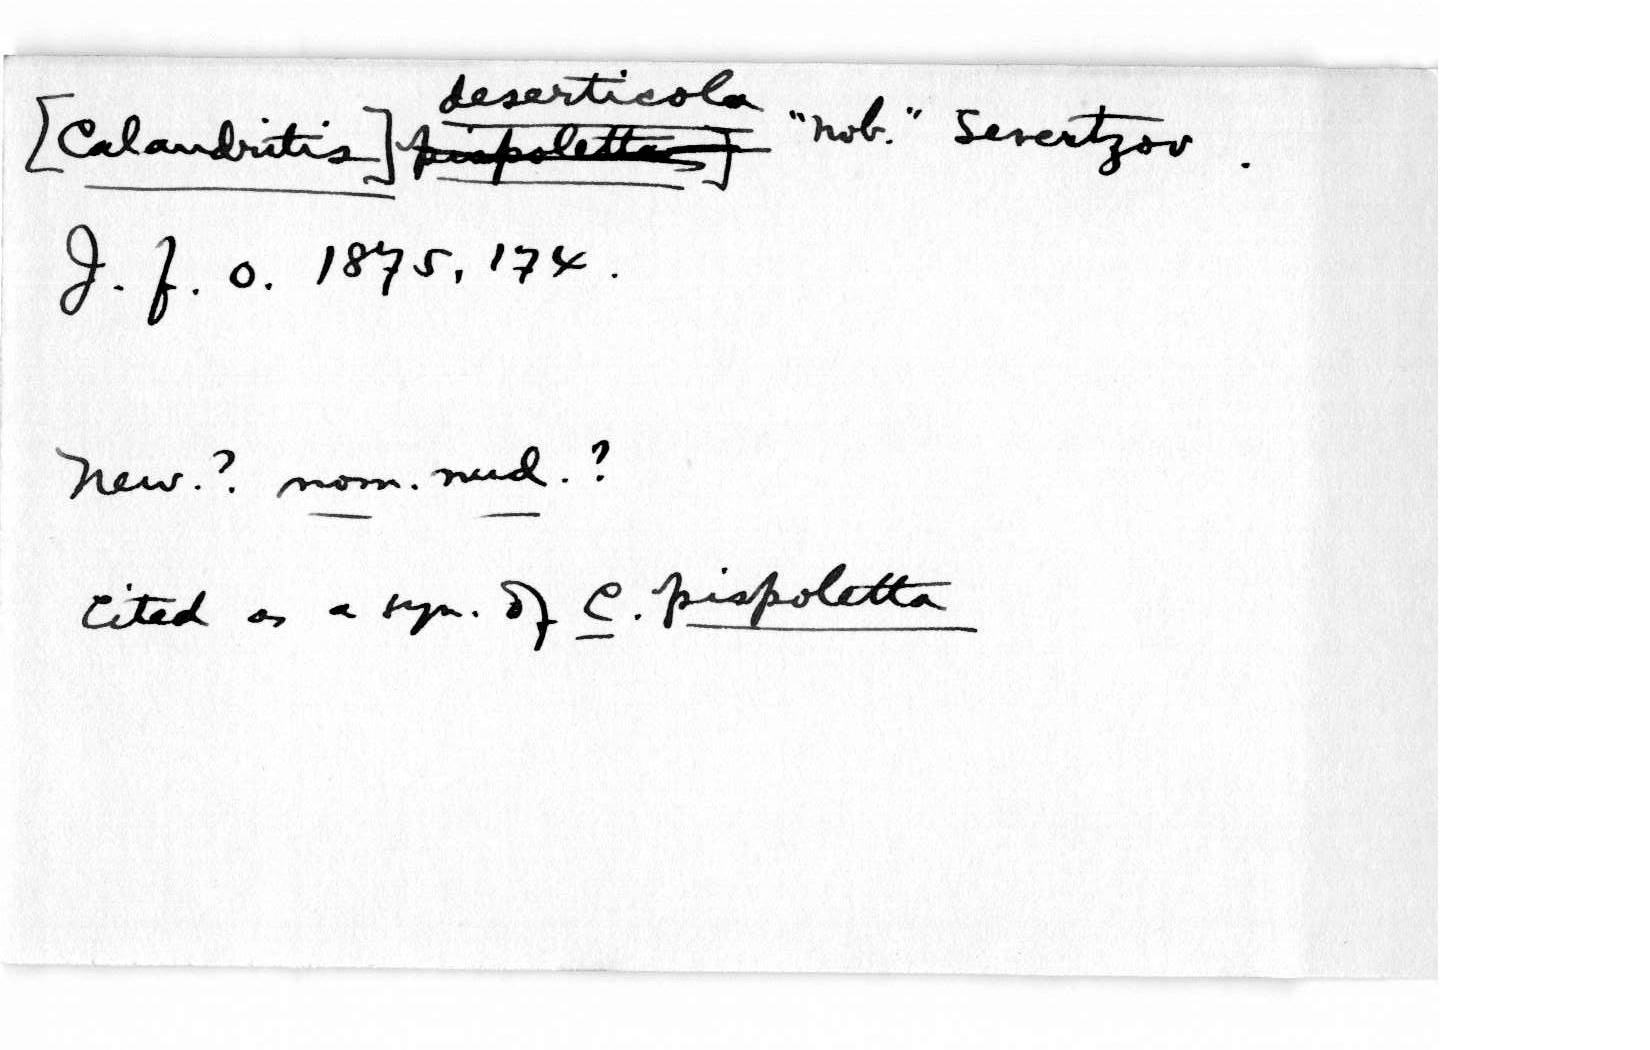 deserticola
[Calandritis] pispoletta] "nob." Severtzov.
J. f. o. 1875, 174.
New.? nom. nud.?
Cited as a syn. of C. pispoletta